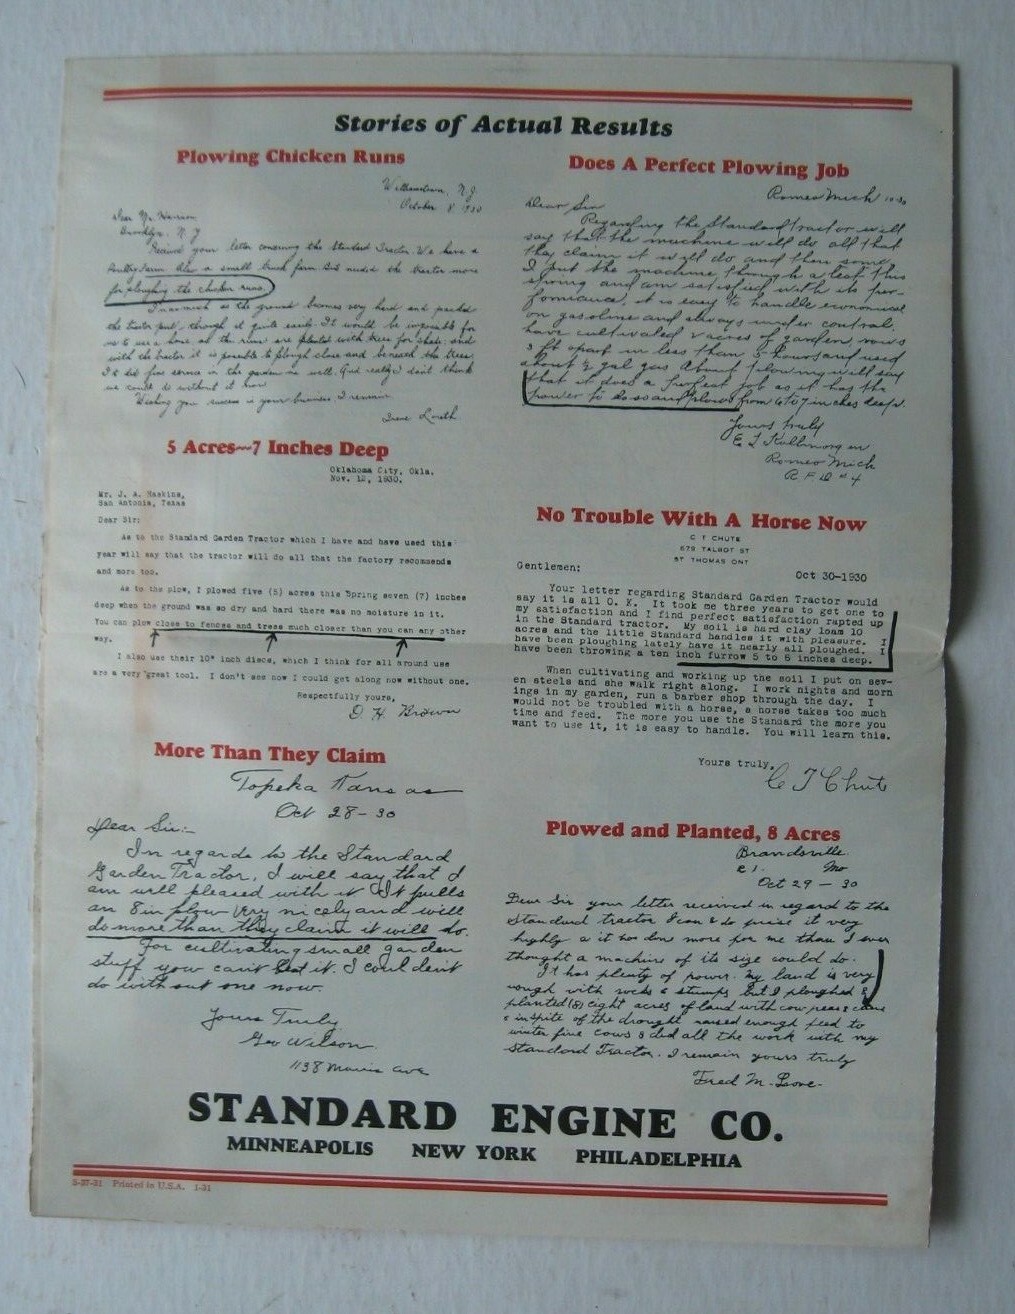 Stories of Actual Results
Plowing Chicken Runs
Williamstown, N.J.
October 8, 1930
Dear Mr.
Brooklyn, N.Y.
Received your letter concerning the Standard Tractor. We have a
Poultry Farm also a small truck farm but needed the tractor more
for ploughing the chicken runs.
Inasmuch as the ground becomes very hard and packed
the tractor puts through it quite easily. It would be impossible for
us to use a horse as the runs are planted with trees for shade; and
with the tractor it is possible to plough close and beneath the trees.
It did fine service in the garden as well. And really I don't think
we could do without it now.
Wishing you success in your business, I remain
5 Acres~7 Inches Deep
Oklahoma City, Okla.
Nov. 12, 1930.
Mr. J. A. Haskins,
San Antonia, Texas
Dear Sir:
As to the Standard Garden Tractor which I have and have used this
year will say that the tractor will do all that the factory recommends
and more too.
As to the plow, I plowed five (5) acres this Spring seven (7) inches
deep when the ground was so dry and hard there was no moisture in it.
You can plow close to fences and trees much closer than you can any other
way.
I also use their 10" inch discs, which I think for all around use
are a very great tool. I don't see now I could get along now without one.
Respectfully yours,
D H. Brown
More Than They Claim
Topeka Kansas
Oct 28-30
Dear Sir:-
In regards to the Standard
Garden Tractor, I will say that I
am well pleased with it It pulls
an 8 in plow very nicely and will
do more than they claim it will do.
For cultivating small garden
stuff you can't beat it. I could don't
do without one now.
Yours Truly
Geo Wilson
1138 Morris ave
Does A Perfect Plowing Job
Romeo Mich 10-30
Dear Sir
Regarding the Standard tractor will
say that the machine will do all that
they claim it will do and then some,
I put the machine through a test this
spring and am satisfied with its per-
formance, it is easy to handle economical
on gasoline and always under control.
have cultivated 2 acres of garden, rows
3 ft apart in less than 5 hours and used
about ½ gal gas About plowing will say
that it does a perfect job as it has the
power to do so and plows from 6 to 7 inches deep.
Yours truly
Romeo Mich
R. F. D #4
No Trouble With A Horse Now
C T CHUTE
679 TALBOT ST
ST THOMAS ONT
Gentlemen:
Oct 30-1930
Your letter regarding Standard Garden Tractor would
say it is all O. K. It took me three years to get one to
my satisfaction and I find perfect satisfaction rapted up
in the Standard tractor. My soil is hard clay loam 10
acres and the little Standard handles it with pleasure. I
have been ploughing lately have it nearly all ploughed. I
have been throwing a ten inch furrow 5 to 6 inches deep.
When cultivating and working up the soil I put on sev-
en steels and she walk right along. I work nights and morn
ings in my garden, run a barber shop through the day. I
would not be troubled with a horse, a horse takes too much
time and feed. The more you use the Standard the more you
want to use it, it is easy to handle. You will learn this.
Yours truly,
C T Chute
Plowed and Planted, 8 Acres
Brandsville
R 1. Mo
Oct 29 - 30
Dear Sir your letter received in regard to the
Standard tractor I can & do praise it very
highly as it has don more for me than I ever
thought a machine of its size could do.
It has plenty of power. my land is very
rough with rocks & stumps but I ploughed &
planted (8) eight acres of land with cow peas & cane
& inspite of the drought raised enough feed to
winter five cows & did all the work with my
Standard Tractor. I remain yours truly
Fred M. Love-
STANDARD ENGINE CO.
MINNEAPOLIS NEW YORK PHILADELPHIA
S-37-31 Printed in U.S.A. 1-31